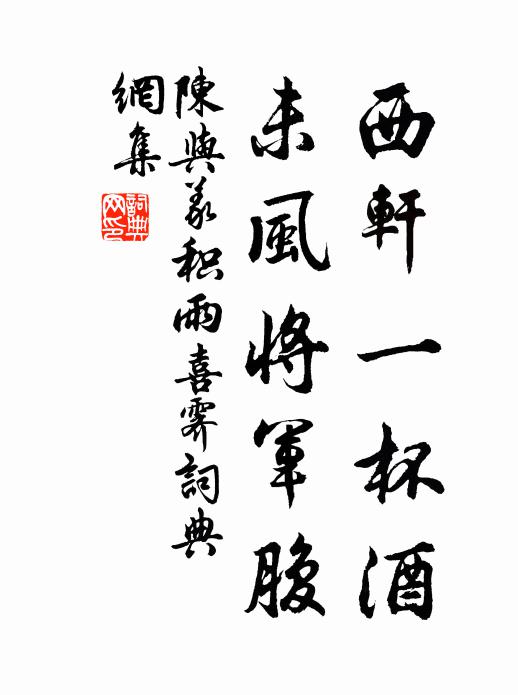 西軒一杯酒
未風將軍腹
陳與義積雨喜霽詞典
網集
詞典網印